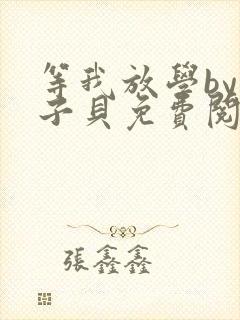 等我放學by
子貝免費閱
張鑫鑫